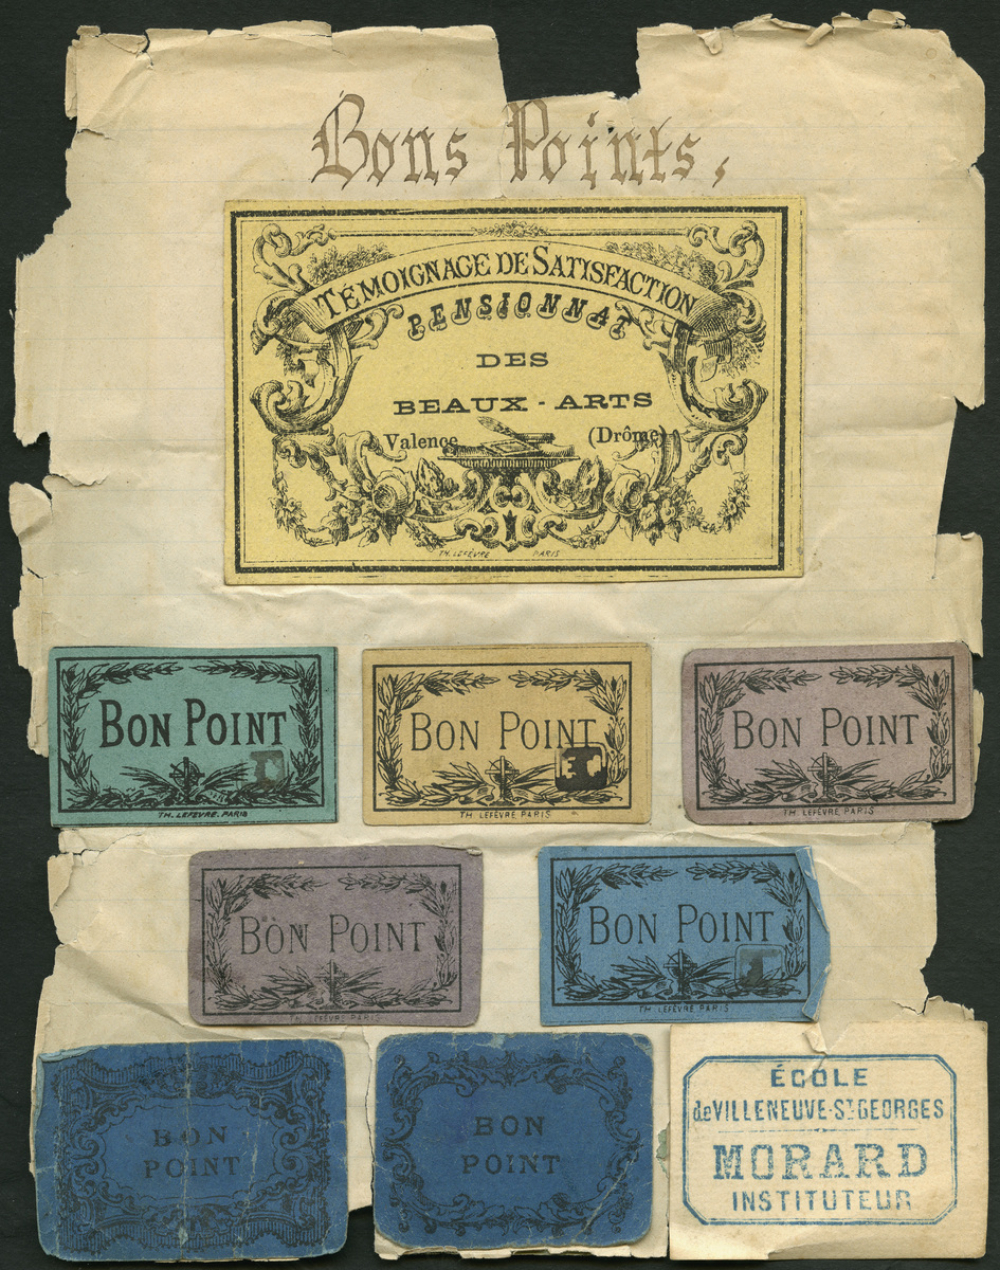 Bons Points,
TÉMOIGNAGE DE SATISFACTION
PENSIONNAT
DES
BEAUX-ARTS
Valence (Drôme)
TH. LEFÈVRE PARIS
BON POINT
TH. LEFÈVRE. PARIS
BON POINT
TH LEFÈVRE PARIS
BON POINT
TH. LEFÈVRE PARIS
BON POINT
TH LEFÈVRE PARIS
BON POINT
TH LEFÈVRE PARIS
BON
POINT
BON
POINT
ÉCOLE
de VILLENEUVE-ST GEORGES
MORARD
INSTITUTEUR